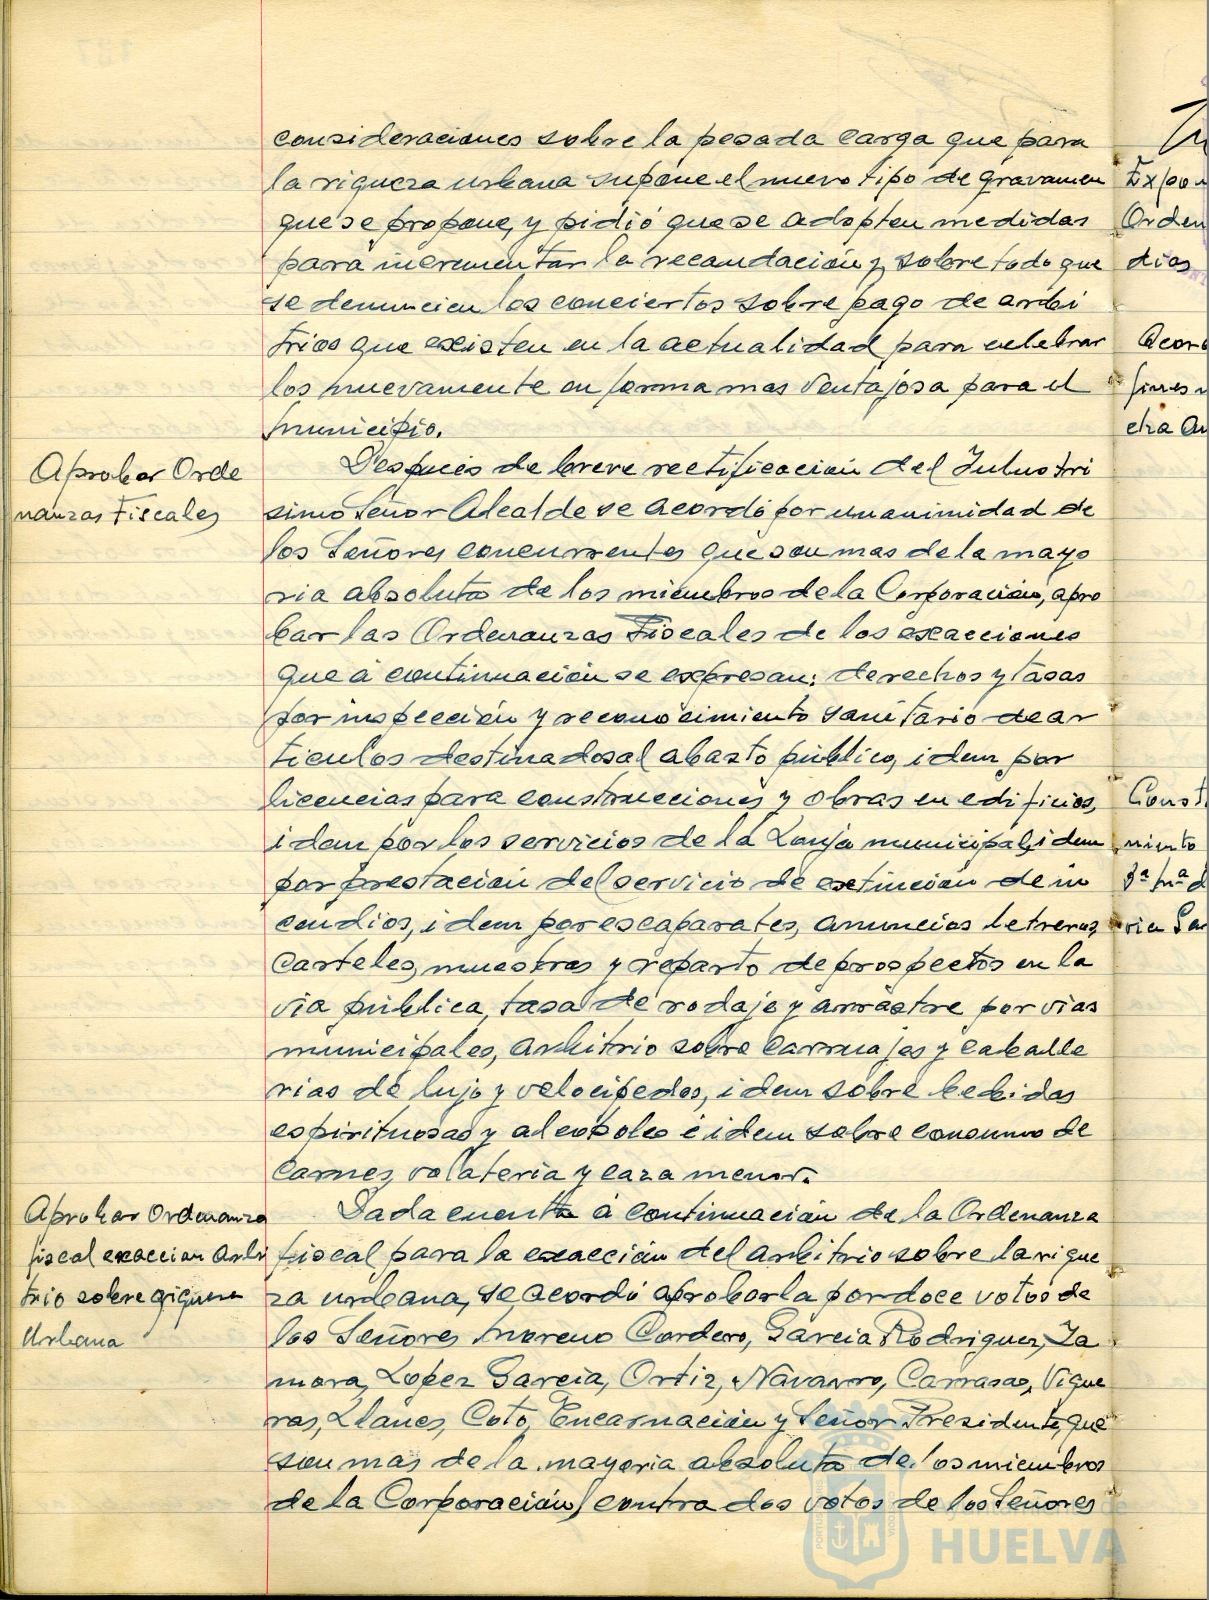 consideraciones sobre la pesada carga que para
la riqueza urbana supone el nuevo tipo de gravamen
que se propone, y pidió que se adopten medidas
para incrementar la recaudación y sobre todo que
se denuncien los conciertos sobre pago de arbi
trios que existen en la actualidad para celebrar
los nuevamente en forma mas ventajosa para el
municipio.
Aprobar Orde
nanzas Fiscales
Despues de breve rectificación del Ilustri
simo Señor Alcalde se acordó por unanimidad de
los Señores concurrentes que son mas de la mayo
ria absoluta de los miembros de la Corporación, apro
bar las Ordenanzas Fiscales de los exacciones
que á continuación se expresan: derechos y tasas
por inspección y reconocimiento sanitario de ar
ticulos destinados al abasto público, idem por
licencias para construcciones y obras en edificios,
idem por los servicios de la Lonja municipal, idem
por prestación del servicio de extinción de in
cendios, idem por escaparates, anuncios letreros,
carteles, muestras y reparto de prospectos en la
via pública, tasa de rodaje y arrastre por vias
municipales, arbitrio sobre carruajes y caballe
rias de lujo y velocipedos, idem sobre bebidas
espirituosas y alcoholes é idem sobre consumo de
carnes, volateria y caza menor.
Aprobar Ordenanza
fiscal exaccion Arbi
trio sobre riqueza
Urbana
Dada cuenta á continuación de la Ordenanza
fiscal para la exacción del arbitrio sobre la rique
za urbana, se acordó aprobarla por doce votos de
los Señores Moreno Cordero, Garcia Rodriguez, Za
mora, Lopez Garcia, Ortiz, Navarro, Carrasco, Vigue
ras, Llanes, Coto, Encarnación y Señor Presidente, que
son mas de la mayoria absoluta de los miembros
de la Corporación, contra dos votos de los Señores
Orden
dias
Const
miento
Ayuntamiento de
HUELVA